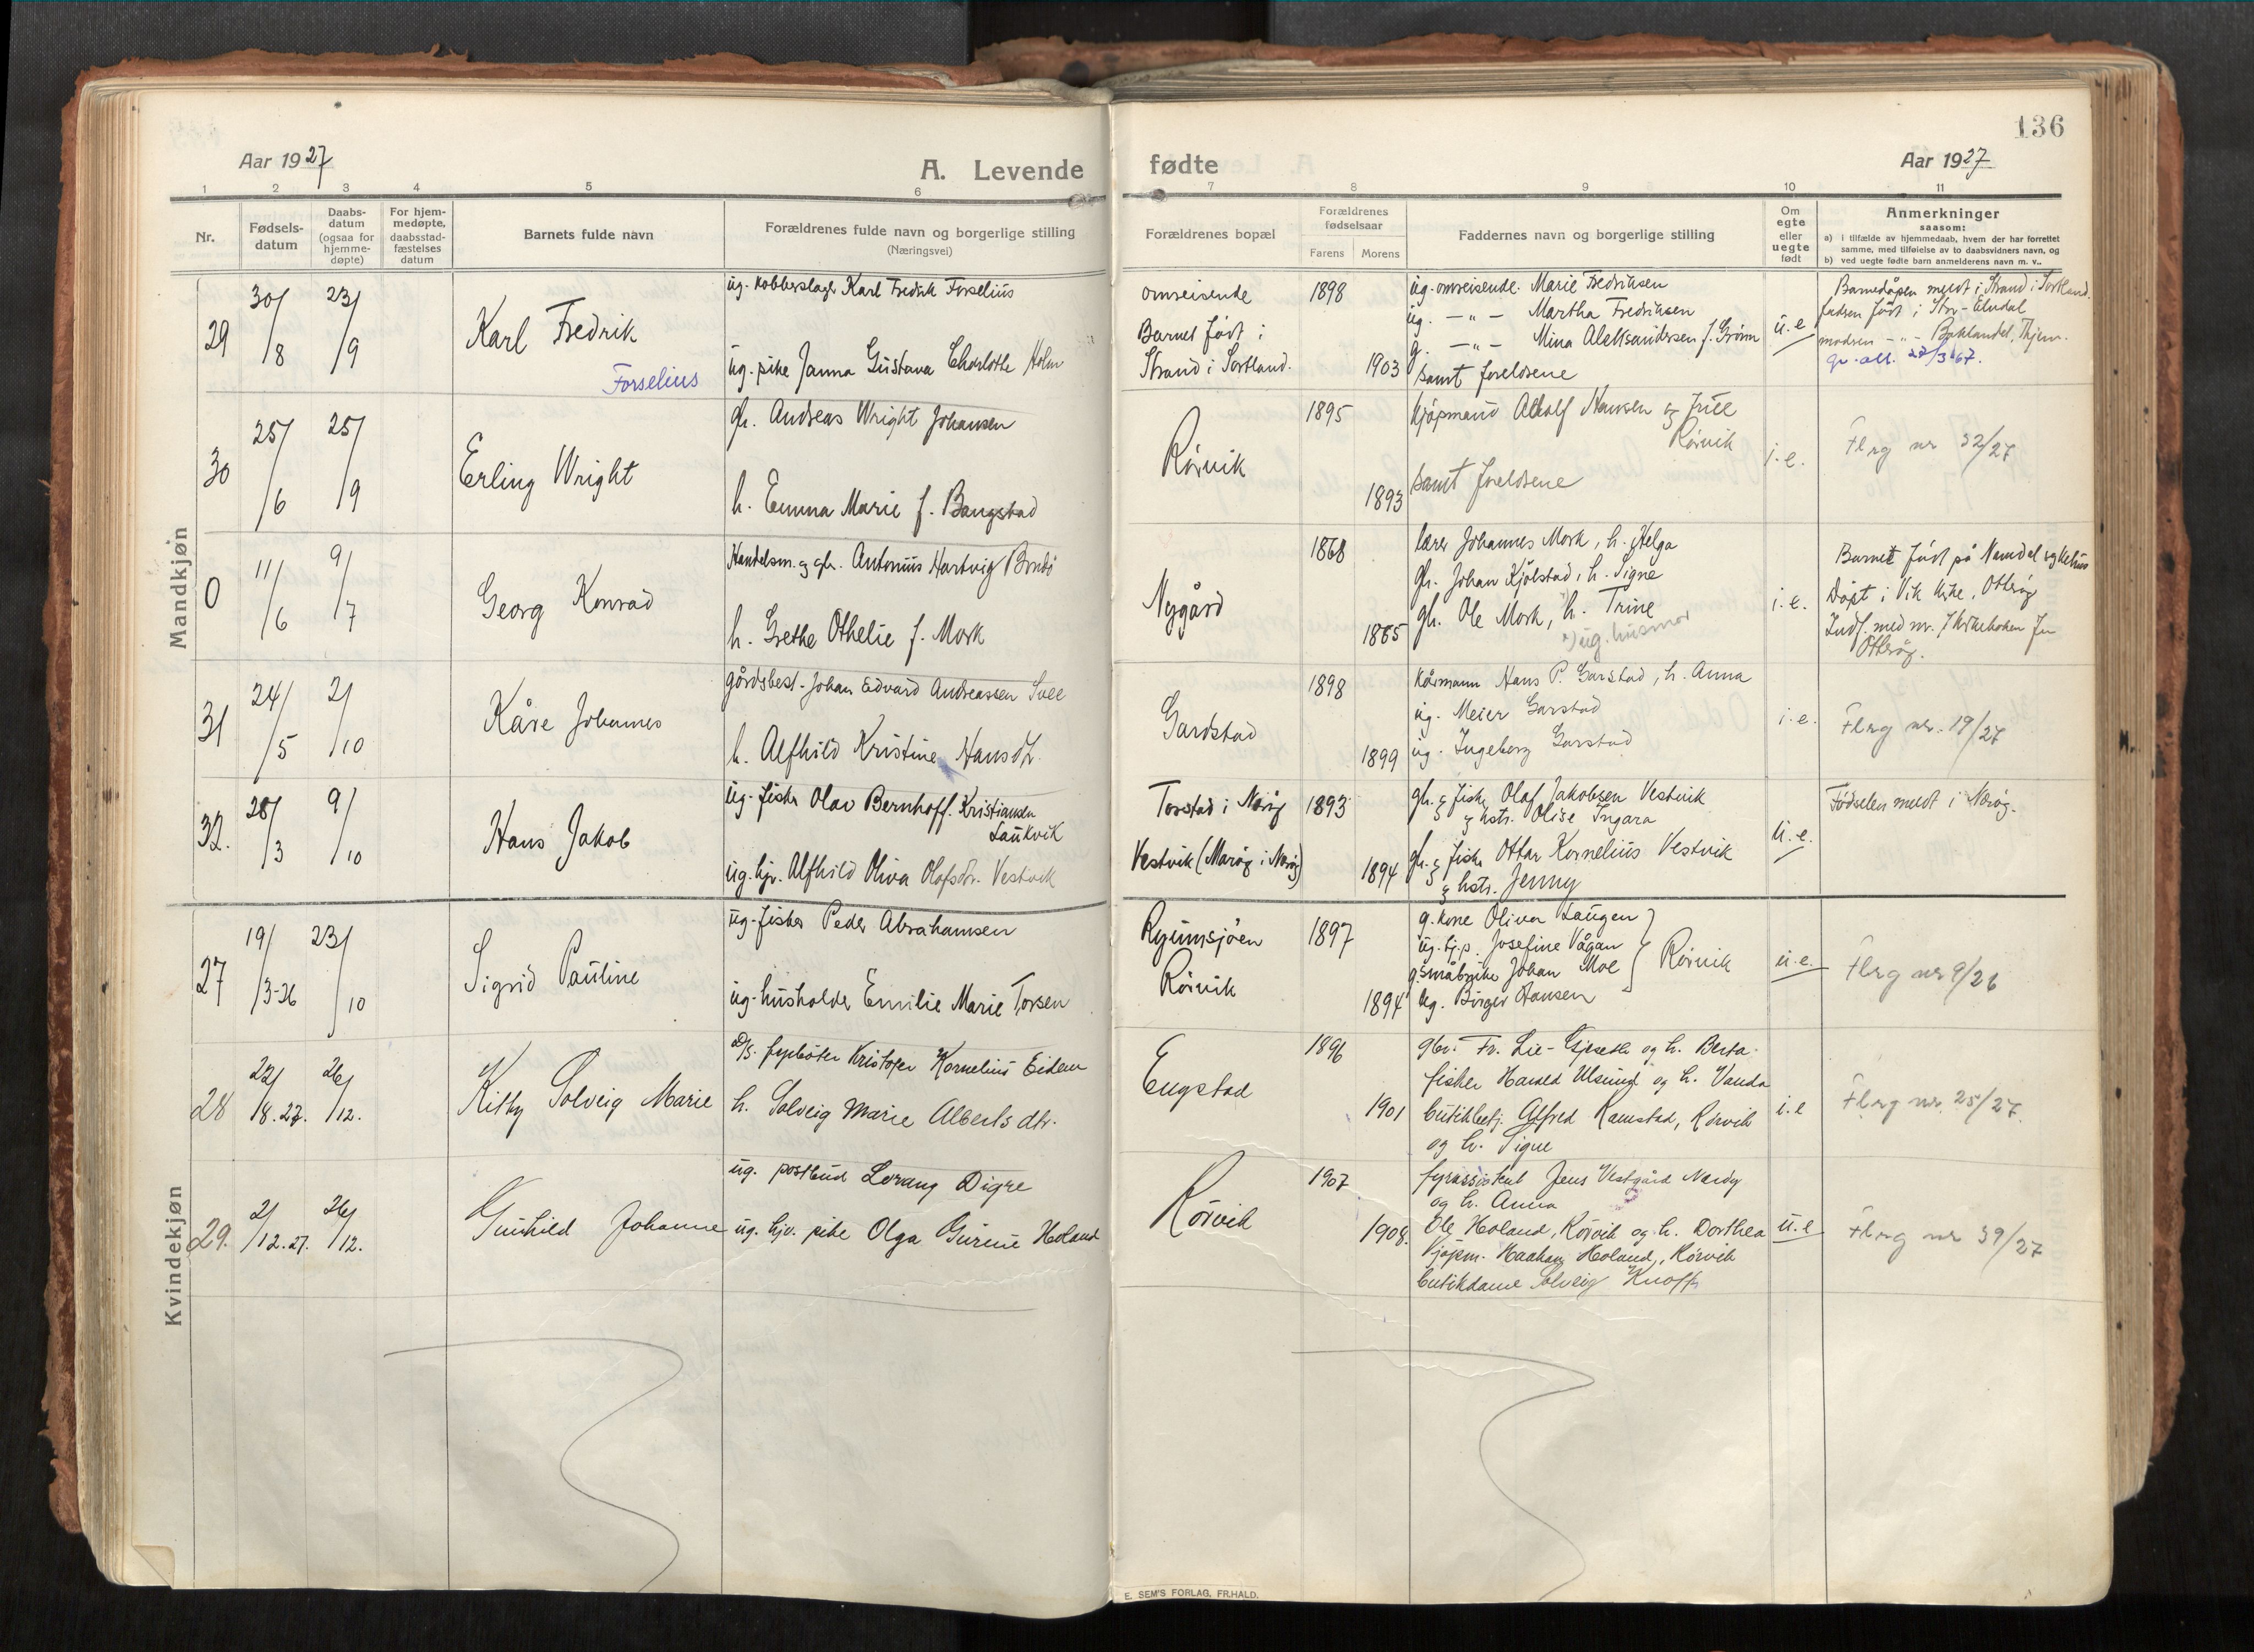 136
Aar 1927
A. Levende
fødte
Aar 1927
1 2 3 4 5 6 7 8 9 10 11
Nr.
Fødsels-
datum
Daabs-
datum
(ogsaa for
hjemme-
døpte)
For hjem-
medøpte,
daabsstad-
fæstelses
datum
Barnets fulde navn
Forældrenes fulde navn og borgerlige stilling
(Næringsvei)
Forældrenes bopæl
Forældrenes
fødselsaar
Farens Morens
Faddernes navn og borgerlige stilling
Om
egte
eller
uegte
født
Anmerkninger
saasom:
a) i tilfælde av hjemmedaab, hvem der har forrettet
samme, med tilføielse av to daabsvidners navn, og
b) ved uegte fødte barn anmelderens navn m. v..
Mandkjøn
29
30/8
23/9
Karl Fredrik
Forselius
ug. kobberslager Karl Fredrik Forselius
ug. pike Janna Gustava Charlotte Holm
omreisende
Barnet født i
Strand i Sortland.
1898
1903
ug. omreisende Marie Fredriksen
ug. —"— Martha Fredriksen
g. —"— Mina Aleksandersen f. Grönn
samt foreldrene
u.e
Barnedåpen meldt i Strand i Sortland.
fadren født i Stor-Elvdal
modren —"— Baklandet, Thjem.
30
25/6
25/9
Erling Wright
gh. Andreas Wright Johansen
h. Emma Marie f. Bangstad
Rörvik
1895
1893
kjøpmand Adolf Hansen
Rörvik
samt foreldrene
i.e.
Flrg nr 32/27
0
11/6
9/7
Georg Konrad
Handelsm. og gh. Antonius Hartvig
h. Grethe Othelie f. Mork
Nygård
1868
1885
lærer Johannes Mork, h. Helga
gh. Johan Kjölstad, h. Signe
gh. Ole Mork, h. Trine
ug. husmor
i.e.
Barnet født på Namdal sykehus
Döpt i Vik kirke, Otterøy
Otterøy.
31
24/5
2/10
Kåre Johannes
gårdsbest. Johan Edvard Andreassen
h. Alfhild Kristine Hansdtr.
Gardstad
1898
1899
kårmann Hans P. Garstad, h. Anna
ug. Meier Garstad
ug. Ingeborg Garstad
i.e.
Flrg nr. 19/27
32.
28/3
9/10
Hans Jakob
ug. fisker Olav Bernhoff. Kristiansen
Laukvik
ug. hjv. Alfhild Oliva Olafsdtr. Vestvik
Torstad i Nærøy
Vestvik (Marøy i Nærøy)
1893
1894
gh. & fisker Olaf Jakobsen Vestvik
& hstr. Olise Ingara
gh. & fisker Ottar Kornelius Vestvik
& hstr. Jenny
u.e.
Fødselen meldt i Nærøy.
Kvindekjøn
27
19/3-26
23/10
Sigrid Pauline
ug. fisker Peder Abrahamsen
ug. husholder Emilie Marie Torsen
Ryumsjöen
Rörvik
1897
1894
g. kone Oliva Laugen
ug. tj.p. Josefine Vågan
g. småbruker Johan Moe
ug. Birger Hansen
Rörvik
u.e.
Flrg nr 9/26
28
22/8.27.
26/12.
Kitty Solveig Marie
d/s. fyrbøter Kristofer Kornelius Eidem
h. Solveig Marie Alberts dtr.
Engstad
1896
1901
gbr. Fr. Lie-Gjeseth og h. Berta
fisker Harald Ulsund og h. Vanda
butikkbetj. Alfred Ramstad, Rörvik
og h. Signe
i.e
Flrg nr. 25/27.
29.
2/12.27.
26/12.
Gunhild Johanne
ug. postbud Lorang Digre
ug. hjv. pike Olga Gurine Holand
Rörvik
1907
1908.
fyrassistent Jens Vestgård Nærøy
og h. Anna
Ole Holand, Rörvik og h. Dorthea
kjøpm. Haakon Holand, Rörvik
butikdame Solveig Knoff
u.e
Flrg nr 39/27
E. SEM'S FORLAG, FR.HALD.